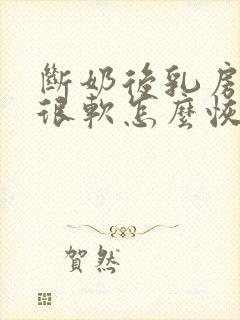 斷奶後乳房
很軟怎麼恢
賀然